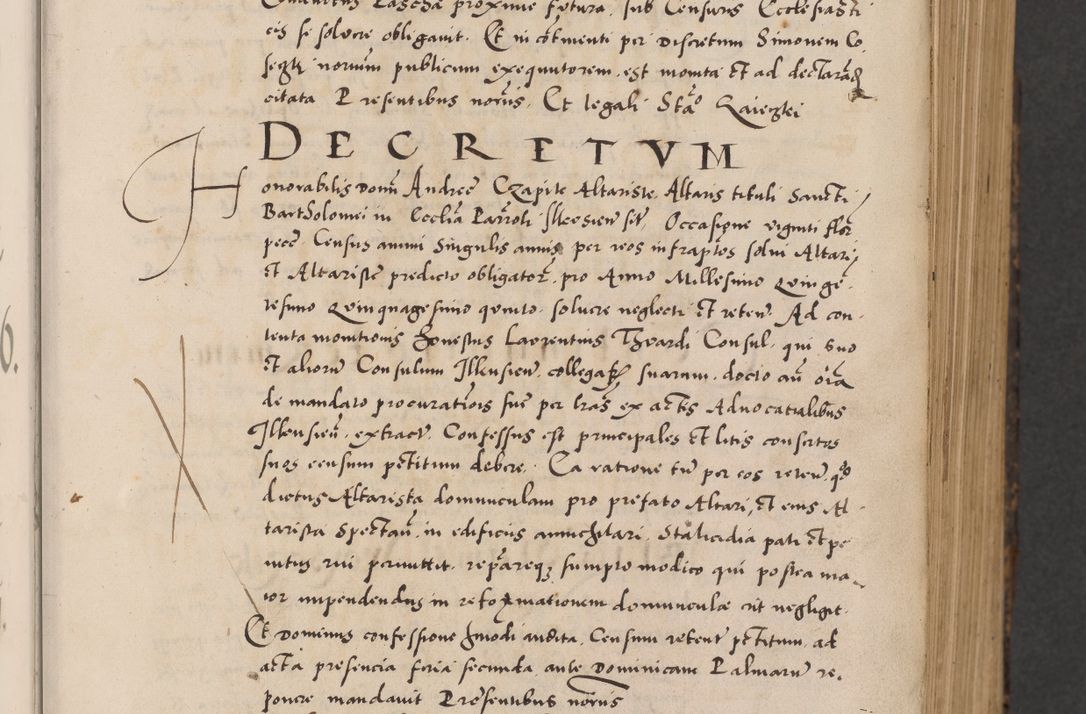 Conventus Pascha proxime futura, sub Censuris Ecclesiasti
cis se solvere obligavit. Et in cōtinenti per Discretum Simonem Co
norium publicum exequutorem est monita Et ad declarad
citata Presentibus noriis. Et legali Sta°
DECRETVM
Honorabilis Domi Andree Czapite Altariste Altaris tituli Sancti
Bartholomei in Ecclia Parroli Illcesien sit, Occasione viginti flor
pece Census annui Singulis annis per reos infraptos solvi Altari
Et Altariste predicto obligator, pro Anno Millesimo Quinge
tesimo Quinquagesimo quinto. solvere neglecti Et reten. Ad con
tenta monitionis honestus Laurentius Thvardi Consul, qui suo
Et aliorum Consulum Illkusien. collegar suarum, docto au ora
de mandato procurationis sue per lras ex actis Advocatialibus
Illkusien. extract. Confessus est principales Et litis consortes
suos censum petitum debere. Ea ratione tn per eos reten qd
dictus Altarista domunculam pro prefato Altari, Et eius Al
tarista Spectan. in edificiis annichilari. Stalicidia pati Et pe
nitus rui permittit. reparareq sumpto modico qui postea ma
ior impendendus in reformationem domunculae ut negligit.
Et Dominus confessione hmodi audita, Censum retent petitum, ad
acta presencia feria secunda ante Dominicam Palmarum re
ponere mandavit Presentibus noriis